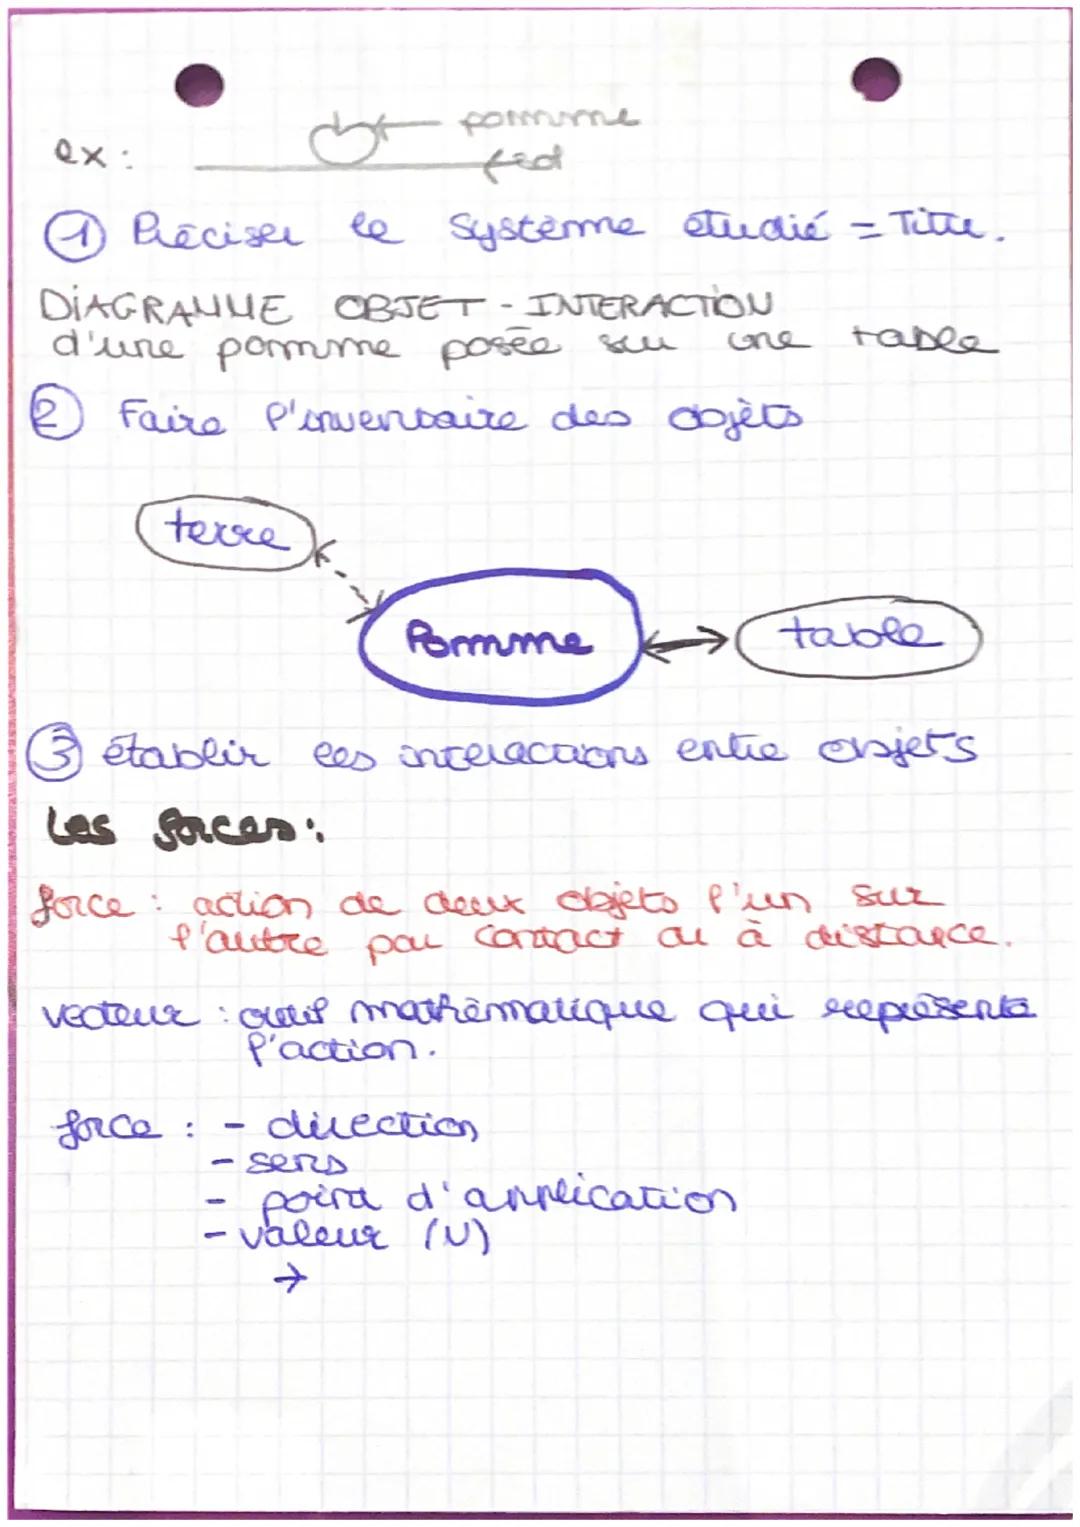 pomme
ex :
① Préciser le système étudié = Titre.
DIAGRAMME OBJET - INTERACTION
d'une pomme posée sur une table
② Faire l'inventaire des objets
terre
Pomme
table
③ établir les interactions entre objets
Les forces :
force : action de deux objets l'un sur
l'autre par contact ou à distance.
vecteur : outil mathématique qui représente
l'action.
force : - direction
- sens
- point d'application
- valeur (N)
→